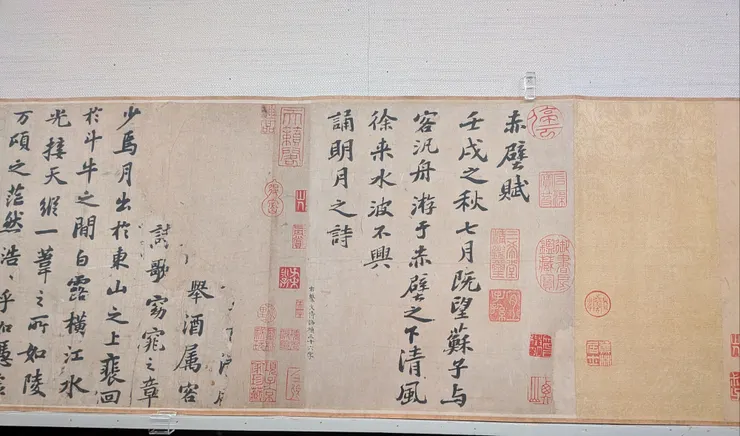 赤壁賦
壬戌之秋七月既望蘇子与
客汎舟游于赤壁之下清風
徐来水波不興
誦明月之詩
天籟閣
舉酒属客
詩歌窈窕之章
少焉月出於東山之上裴回
於斗牛之間白露橫江水
光接天縱一葦之所如陵
万頃之茫然浩〻乎如憑